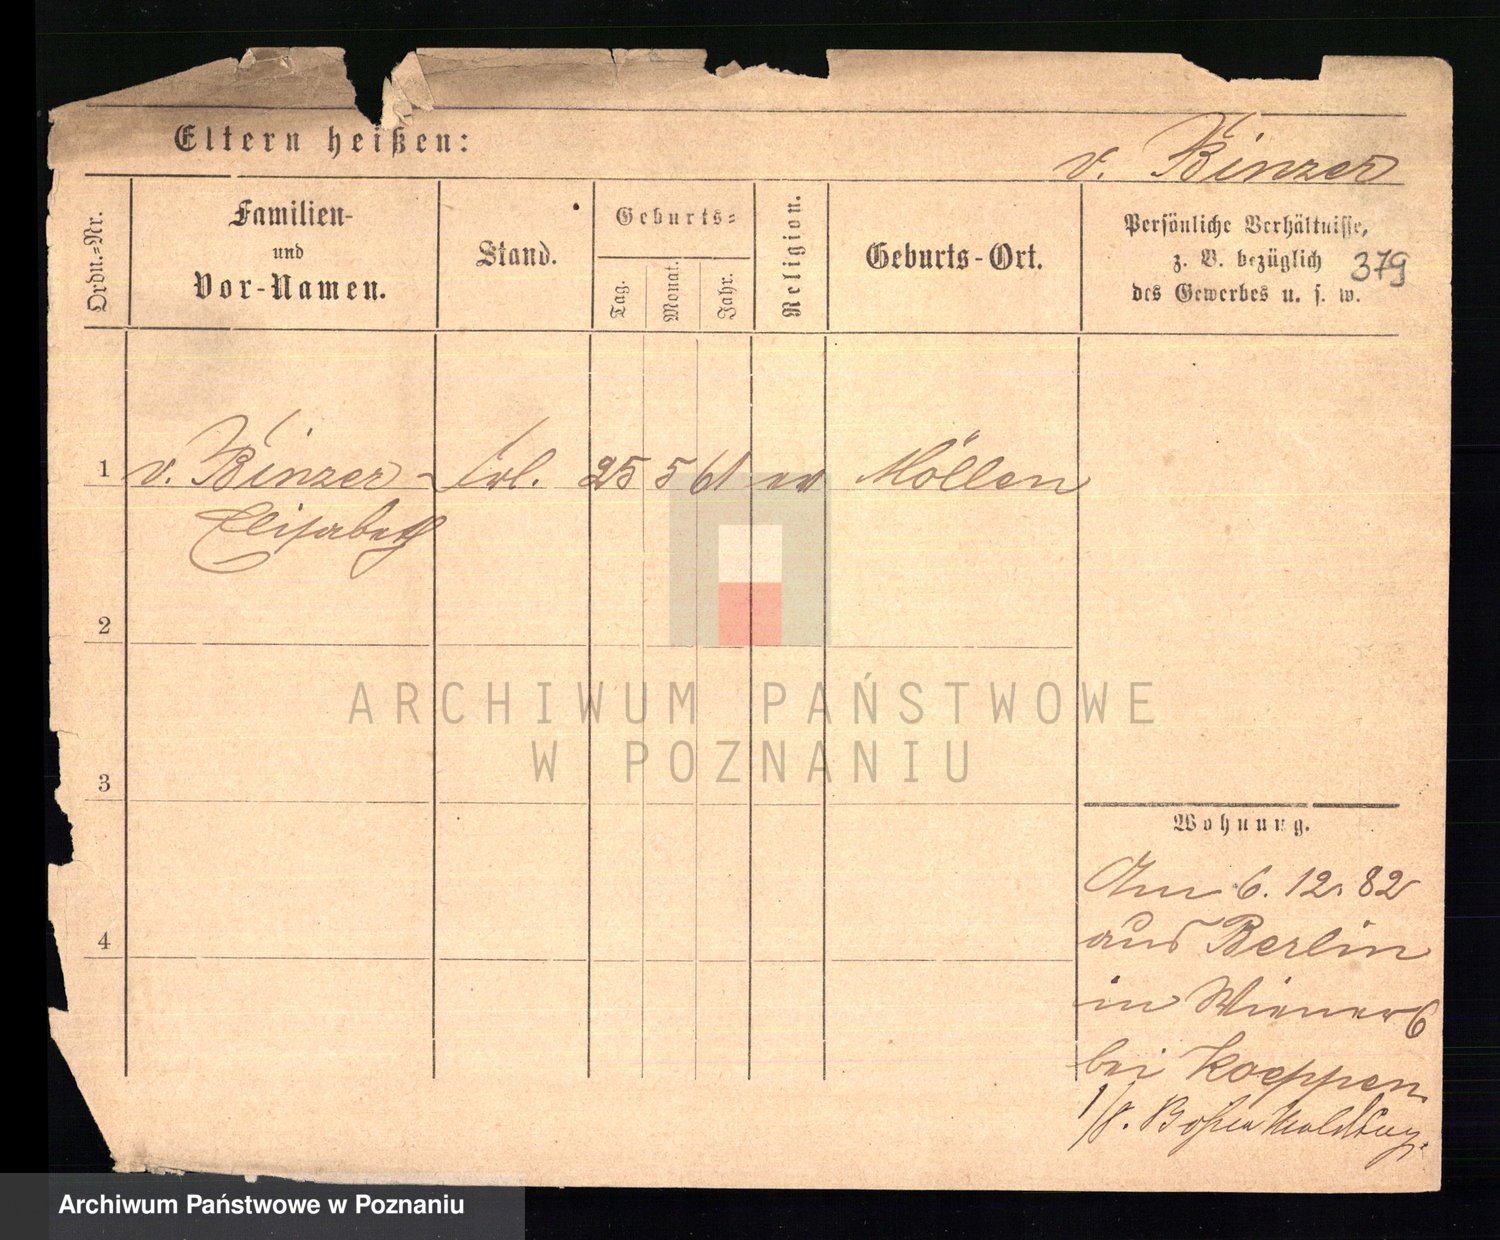 Eltern heißen:
v. Binzer
Ordn.-Nr.
Familien-
und
Vor-Namen.
Stand.
Geburts-
Tag.
Monat.
Jahr.
Religion.
Geburts-Ort.
Persönliche Verhältnisse,
z. B. bezüglich
des Gewerbes u. s. w.
379
1 v. Binzer Frl. 25 5 61 ev Möllen
Elisabeth
2
3
4
Wohnung.
Am 6. 12. 82
aus Berlin
in Wiener 6
bei Koeppen
1/8.
ARCHIWUM PAŃSTWOWE
W POZNANIU
Archiwum Państwowe w Poznaniu